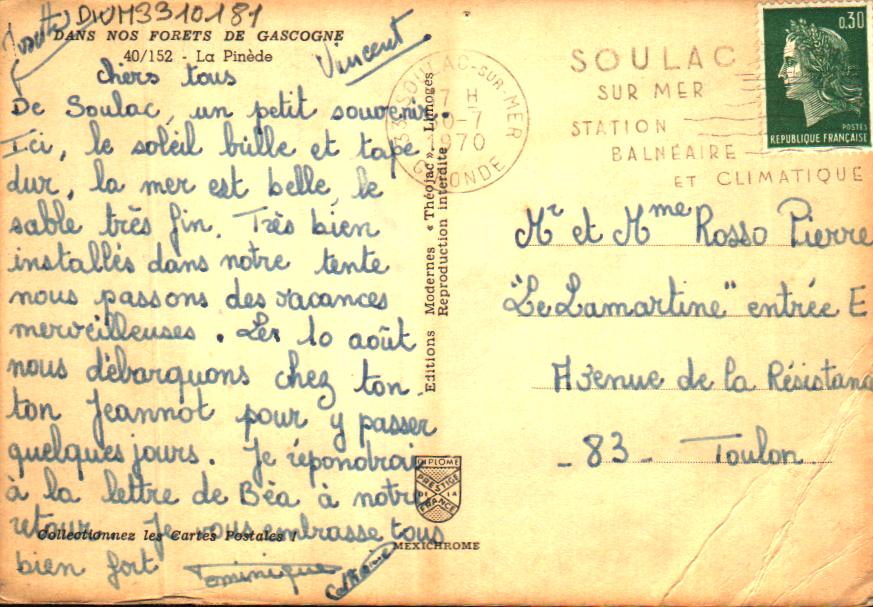 DWM3310181
Josette
DANS NOS FORETS DE GASCOGNE
40/152 - La Pinède
Vincent
chers tous
De Soulac, un petit souvenir.
Ici, le soleil brille et tape
dur, la mer est belle, le
sable très fin. Très bien
installés dans notre tente
nous passons des vacances
merveilleuses. Les 10 août
nous débarquons chez ton
ton Jeannot pour y passer
quelques jours. Je répondrai
à la lettre de Béa à notre
retour. Je vous embrasse tous
bien fort Dominique
Collectionnez les Cartes Postales !
Editions Modernes « Théojac » Limoges
Reproduction interdite
DIPLOME
PRESTIGE
DE LA
FRANCE
MEXICHROME
33 SOULAC-SUR-MER
17 H
30-7
1970
GIRONDE
SOULAC
SUR MER
STATION
BALNÉAIRE
ET CLIMATIQUE
0,30
POSTES
REPUBLIQUE FRANÇAISE
Mr et Mme Rosso Pierre
"Le Lamartine" entrée E
Avenue de la Résistanc
- 83 - Toulon